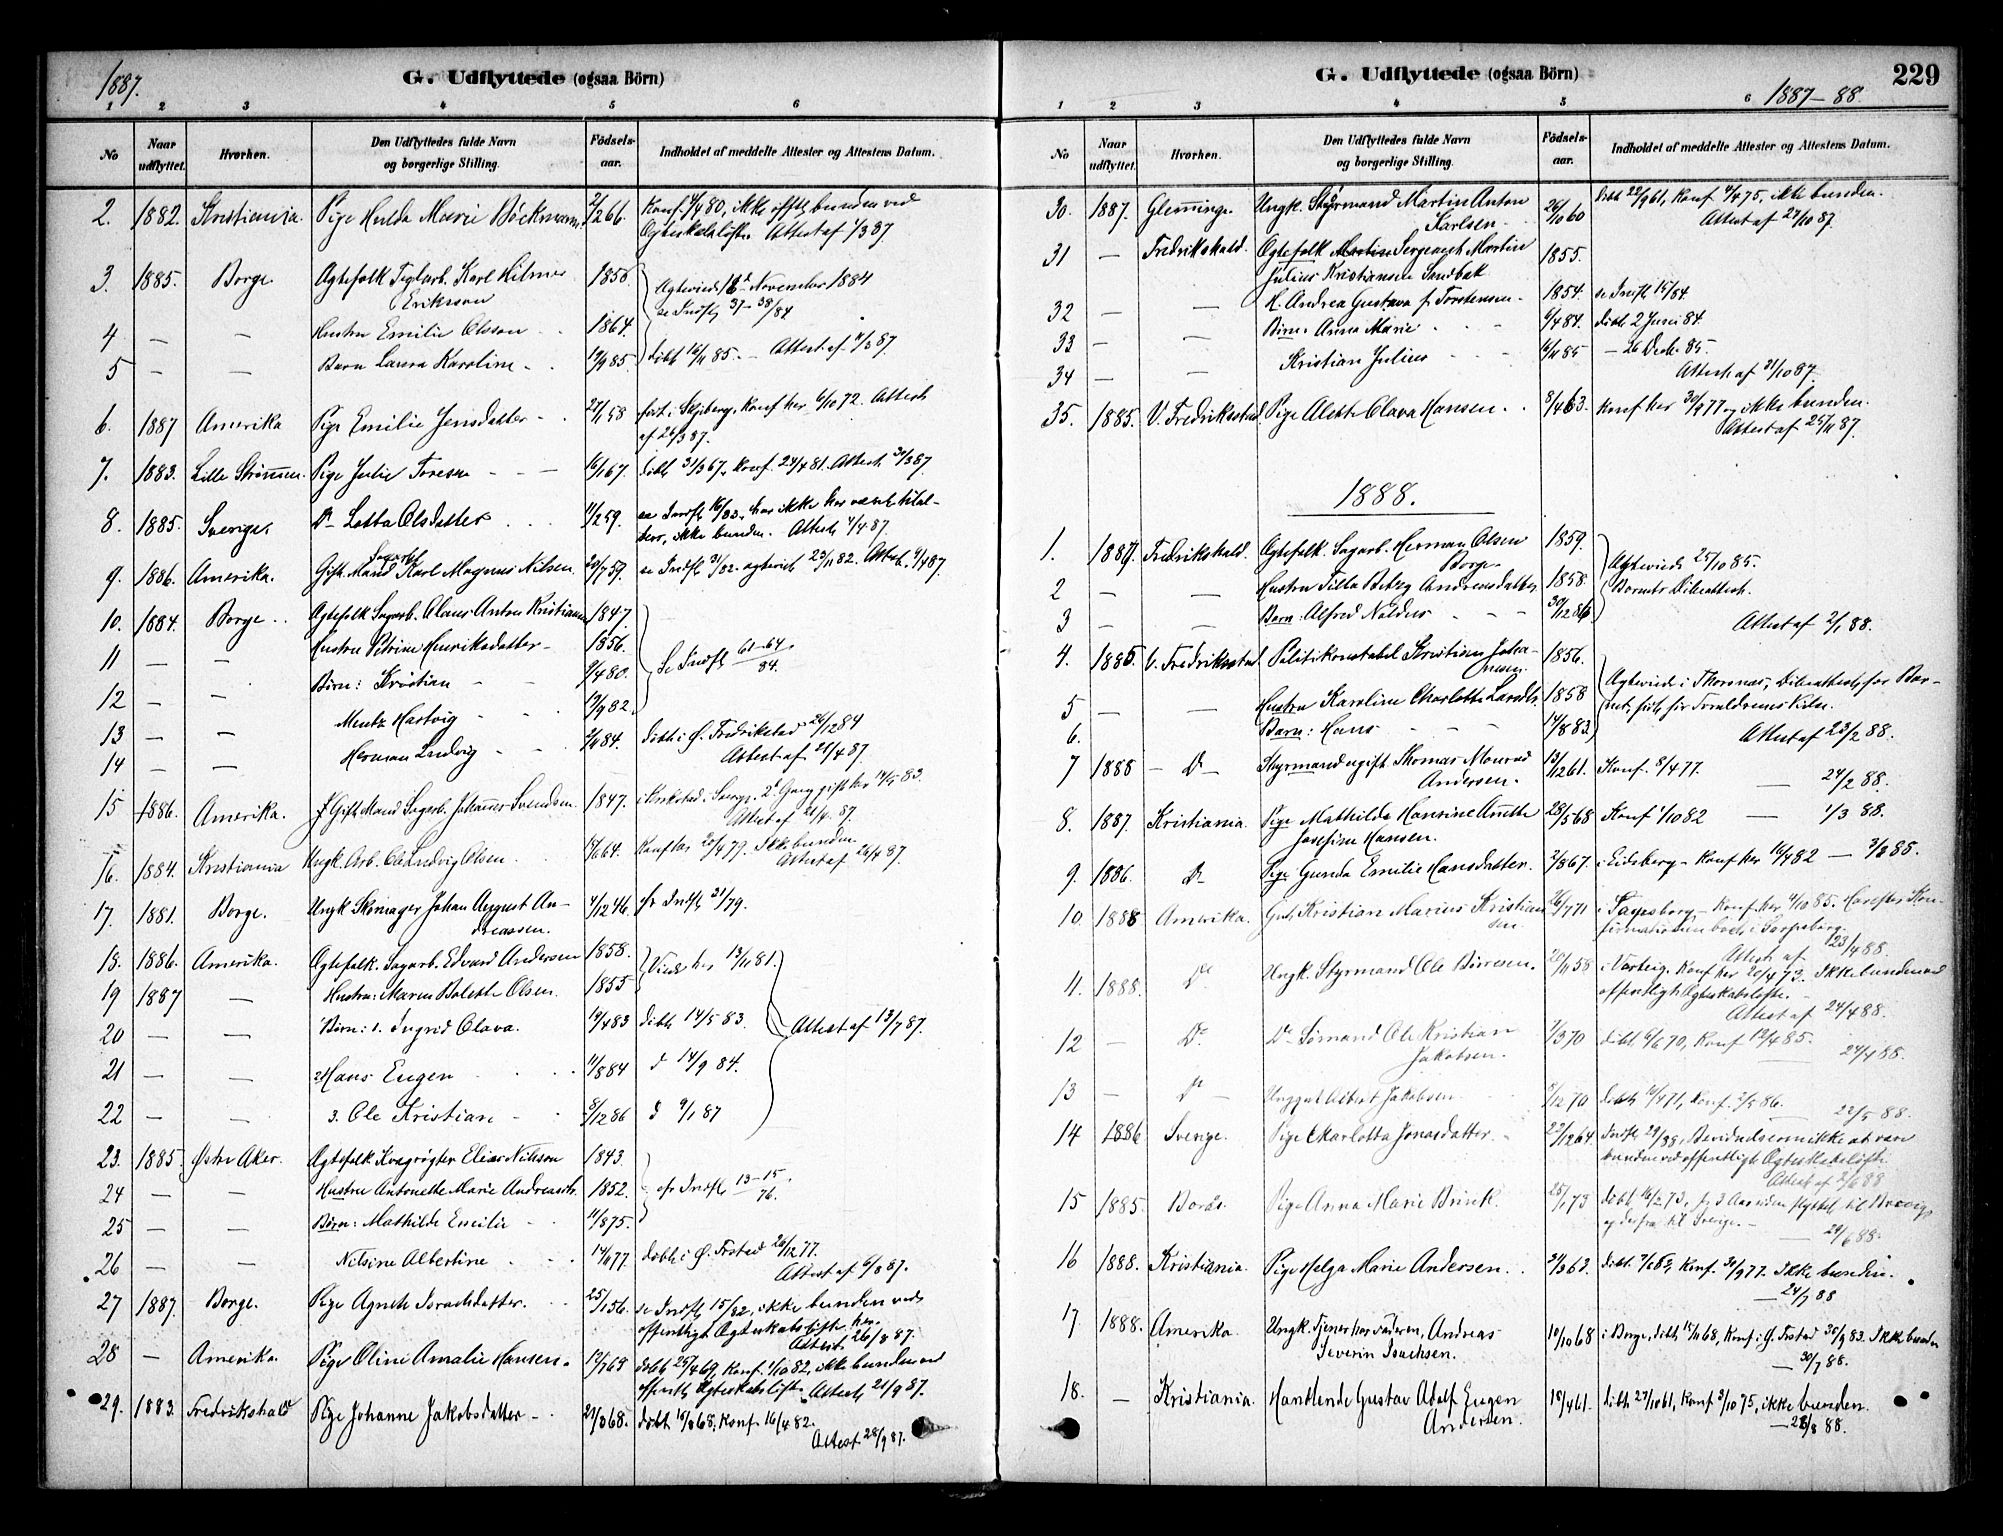 1887.
G. Udflyttede (ogsaa Börn)
1 2 3 4 5 6
No Naar udflyttet. Hvorhen. Den Udflyttedes fulde Navn og borgerlige Stilling. Födsels-aar. Indholdet af meddelte Attester og Attestens Datum.
2. 1882. Kristiania. Pige Hulda Marie Böckmann. 2/2 66. Konf. 4/4 80, ikke offtl. bunden ved
Ægteskabsløfte. Attest af 1/3 87
3. 1885. Borge. Ægtefolk Teglarb. Karl Hilmer 1856
Eriksson Ægteviede 18de November 1884
se Indfl. 37-38/84
4 — — Hustru Emilie Olsson 1864.
5 — — Barn Laura Karoline 19/9 85. døbt 16/11 85. — Attest af 11/3 87.
6. 1887 Amerika Pige Emilie Jensdatter 27/11 58 født i Skjeberg, Konf her 6/10 72. Attest
af 26/3 87.
7. 1883. Lille Strømmen. Pige Julie Toresen 16/1 67. døbt 31/3 67. Konf. 24/4 81. Attest 30/3 87.
8. 1885. Sverige. Do Lotta Olsdatter 11/2 59. se Indfl 16/83., har ikke her været tilal-
ters, ikke bunden. Attest 1/4 87.
9. 1886. Amerika. Gift Mand Sagarb Karl Magnus Nilsen. 20/7 59. se Indfl 31/82. ægteviet 23/11 82. Attest. 4/4 87.
10. 1884. Borge. Ægtefolk Sagarb. Olaus Anton Kristiansen 1847.
11 — — Hustru Petrine Henriksdatter 1856. Se Indfl 61-64/84.
12 — — Børn: Kristian 2/4 80.
13 — — Mentz Hartvig 19/9 82.
14 — — Herman Ludvig 2/11 84. døbt i Ø. Fredrikstad 26/12 84
Attest af 21/4 87.
15 1886. Amerika. Gift Mand Sagarb. Johannes Svendsen. 1847. i Sverige. 2d Gang gift her 14/5 83.
Attest af 21/4 87.
16. 1884. Kristiania Ungk. Arb. Ole Ludvig Olsen. 17/6 64. Konf her 20/4 79. Ikke bunden.
Attest af 26/4 87.
17. 1881. Borge. Ungk Skomager Johan August An- 4/12 46. fr Indfl 21/79.
dreassen.
18. 1886. Amerika. Ægtefolk. Sagarb. Edvard Andersen 1858. Viede her 13/11 81.
19 1887 — Hustru: Maren Bolette Olsen. 1855
20 — — Børn: 1. Ingrid Olava. 19/4 83 døbt 14/5 83. Attest af 13/7 87.
21 — — 2 Hans Eugen 11/8 84 d 14/9 84.
22 — — 3. Ole Kristian 8/12 86 d 9/1 87
23. 1885. Østre Aker. Ægtefolk Kvægrøgter Elias Nilsson 1843.
24 — — Hustru Antonette Marie Andreasdt. 1852. cfr Indfl 13-15/76.
25 — — Børn: Mathilde Emilie 11/8 75.
26 — — Nilsine Albertine 14/11 77. døbt i Ø. Frstad 26/12 77.
Attest af 6/8 87.
27 1887. Borge. Pige Agneth Isachsdatter. 25/1 56. se Indfl 15/82, ikke bunden ved
offentligt Ægteskabsløfte her.
Attest 26/8 87.
28 — Amerika. Pige Oline Amalie Hansen. 12/7 69 døbt 25/4 69, Konf. 1/10 82, ikke bunden ved
offentl Ægteskabsløfte Attest 21/9 87.
29. 1883. Fredrikshald Pige Johanne Jakobsdatter 21/3 68. døbt 15/3 68, Konf 16/4 82.
Attest 28/9 87.
G. Udflyttede (ogsaa Börn) 229
1 2 3 4 5 6 1887-88.
No Naar udflyttet. Hvorhen. Den Udflyttedes fulde Navn og borgerlige Stilling. Födsels-aar. Indholdet af meddelte Attester og Attestens Datum.
30. 1887. Glemminge. Ungk. Styrmand Martin Anton 26/10 60 Døbt 22/9 61, Konf 4/4 75, ikke bunden.
Karlsen. Attest af 27/10 87.
31 — Fredrikshald. Ægtefolk Sergeant Martin 1855.
Julius Kristiansen Sandbæk
32 — — H. Andrea Gustava f. Torstensen 1854. se Indfl 15/84.
33 — — Børn: Anna Marie 6/4 84. døbt 2 Juni 84.
34 — — Kristian Julius 16/11 85 — 26 Decbr. 85.
Attest af 31/10 87
35. 1885. V. Fredriksstad Pige Alette Olava Hansen 8/4 63. Konf her 30/9 77 og ikke bunden.
Attest af 25/11 87.
1888.
1. 1887. Fredrikshald. Ægtefolk. Sagarb. Herman Olsen 1859.
Borge. Ægteviede 25/10 85.
2 — — Hustru Tilla Betzy Andreasdatter 1858. Barnets Døbeattest.
3 — — Barn: Alfred 30/12 86
Attest af 2/1 88.
4. 1885. V. Fredriksstad Politikonstabel Kristian Joha- 1856.
nesen. Ægteviede i Thomas, Døbeattest for Bar-
5 — — Hustru Karoline Charlotte 1858 net, født før Forældrenes Vielse.
6. Barn: Hans 14/8 83. Attest af 23/2 88.
7 1888 — Do — Styrmand ugift. Thomas Monrad 13/12 61. Konf. 8/4 77.
Andersen. — 24/2 88.
8. 1887. Kristiania. Pige Mathilde Hansine Anette 28/5 68 Konf 1/10 82 — 1/3 88.
Josefine Hansen.
9. 1886. Do Pige Gunda Emilie Hansdatter. 2/8 67. i Eidsberg - Konf her 16/4 82 — 3/3 88.
10. 1888 Amerika. Gut Kristian Marius Kristian- 26/7 71 i Sarpsborg, - Konf her 4/10 85. Har efter Kon-
sen firmationen boet i Sarpsborg.
Attest af 23/4 88.
11. 1888. Do Ungk. Styrmand Ole Børresen. 20/11 58 i Varteig. Konf her 20/4 73. Ikke bunden ved
offentligt Ægteskabsløfte.
Attest af 24/4 88.
12 — Do Do Sømand Ole Kristian 7/3 70 døbt 6/6 70, Konf 12/4 85.
Jakobsen. 24/4 88.
13 — Do — Albert Jakobsen 5/12 70 døbt 10/4 71, Konf. 2/5 86.
22/5 88.
14 1886 Sverige. Pige Charlotta Jonasdatter. 22/12 64 Indfl 29/88, Bevidnelse om ikke at være
bunden ved offentligt Ægteskabsløfte.
Attest af 2/6 88
15 1885. Borås. Pige Anna Marie Brink 25/1 73 døbt 16/2 73, fr 3 Aar siden flyttet til Brevig
og derfra til Sverige. —
— 29/6 88.
16 1888. Kristiania. Pige Helga Marie Andersen. 31/3 62. døbt 7/6 62, Konf. 30/9 77. Ikke bunden.
— 24/7 88
17. 1888. Amerika. Ungk. Tjener hos Faderen, Andreas 10/10 68 i Borge, døbt 15/11 68, Konf i Ø. Frstad 30/9 83. Ikke bunden
Severin Isachsen. — 30/7 88.
18. — Kristiania. Handlende Gustav Adolf Eugen 18/4 61. døbt 27/10 61, Konf 3/10 75, ikke bunden.
Andersen. — 28/8 88.